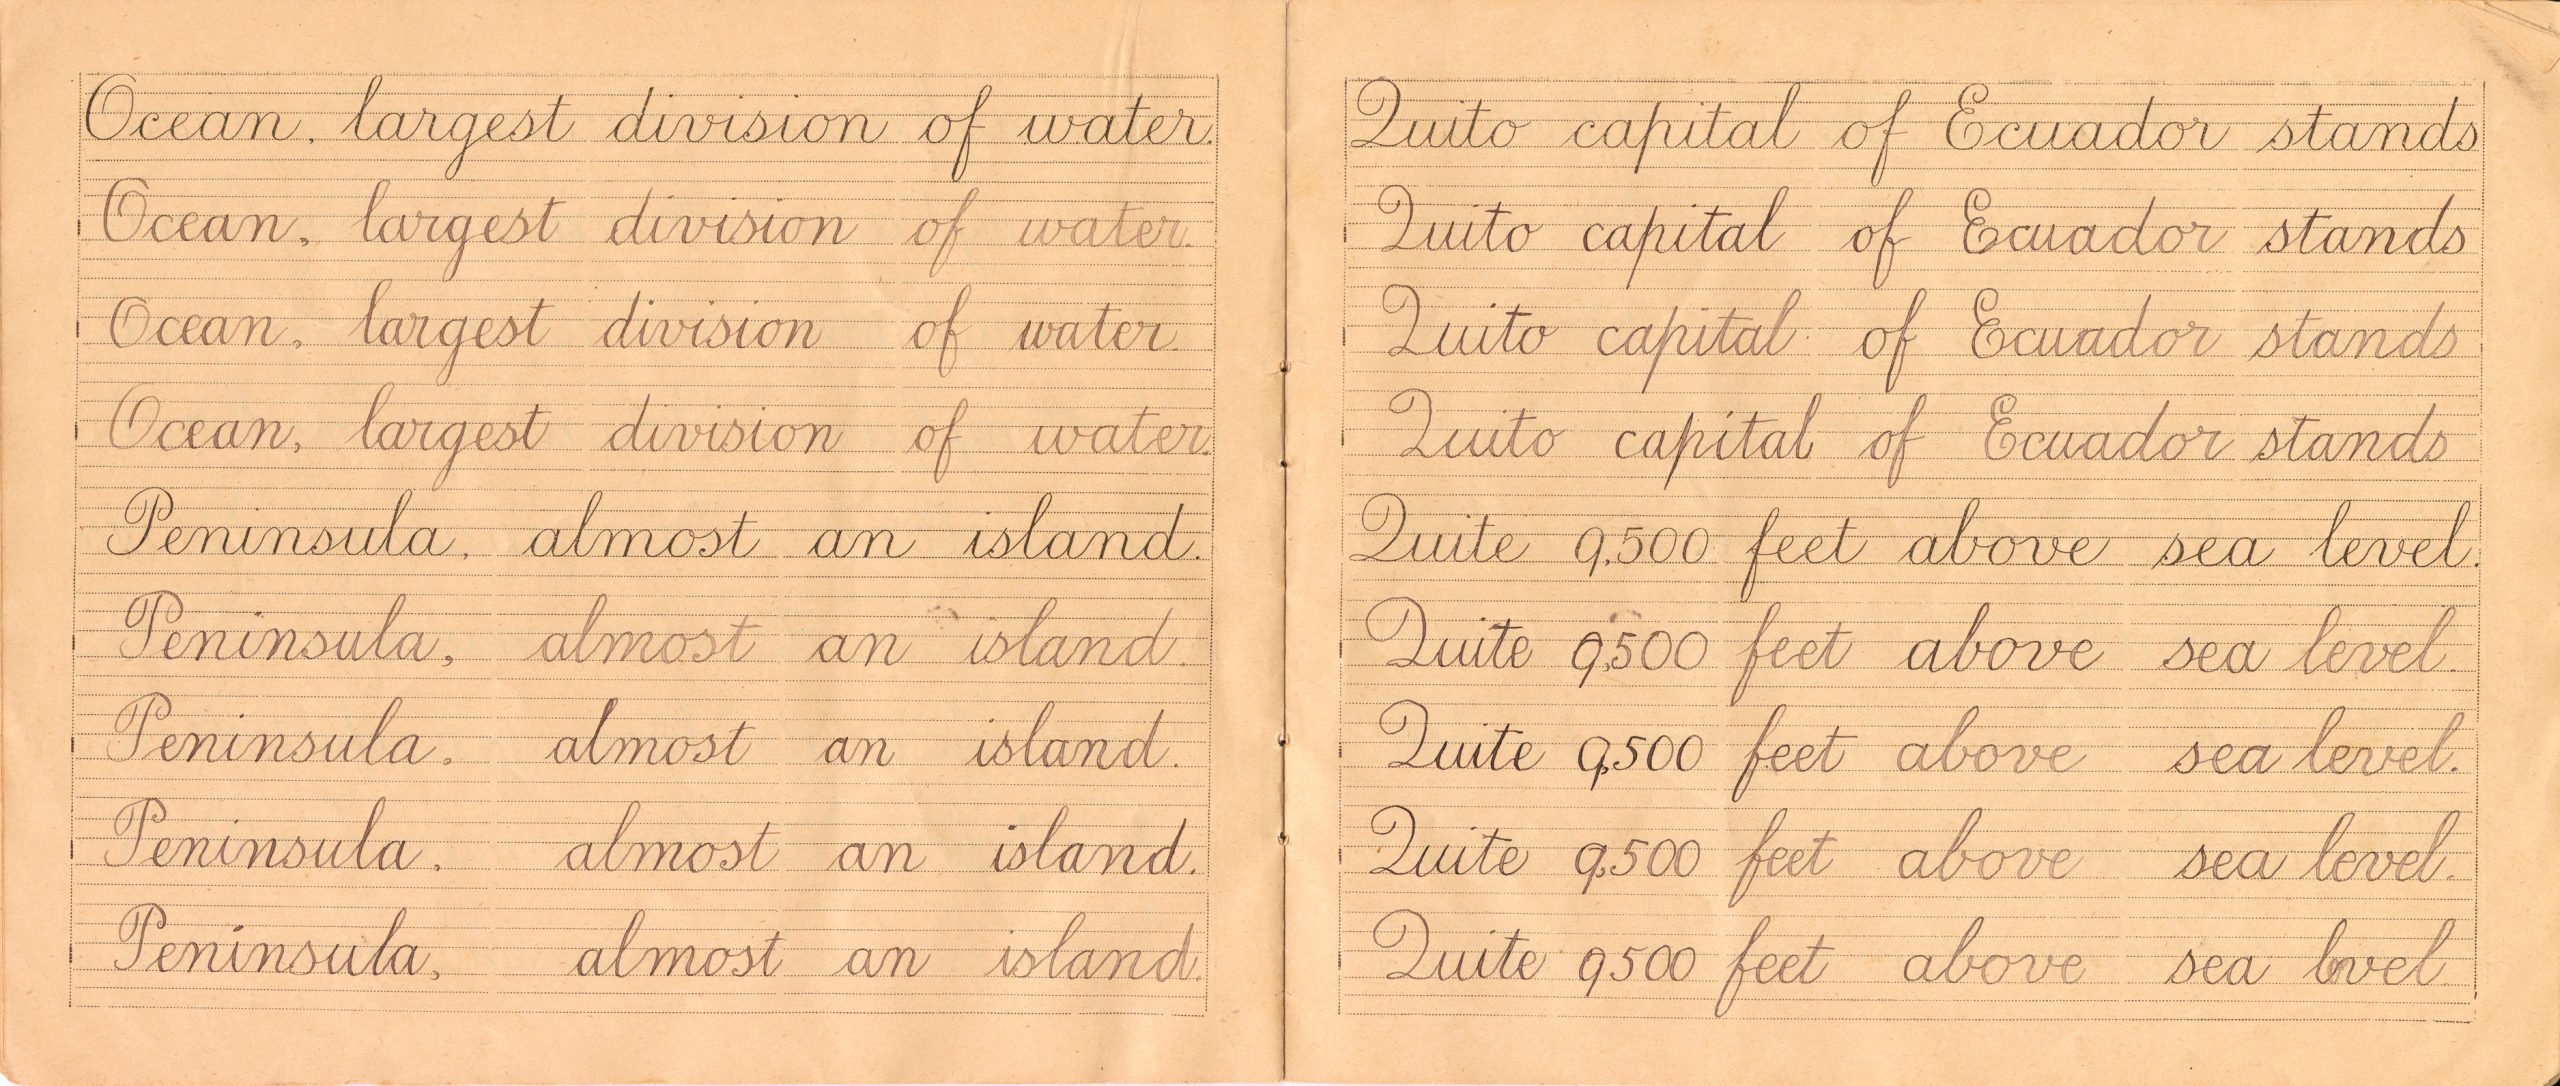 Ocean, largest division of water.
Ocean, largest division of water.
Ocean, largest division of water.
Ocean, largest division of water.
Peninsula, almost an island.
Peninsula, almost an island.
Peninsula, almost an island.
Peninsula, almost an island.
Peninsula, almost an island.
Quito capital of Ecuador stands
Quito capital of Ecuador stands
Quito capital of Ecuador stands
Quito capital of Ecuador stands
Quite 9,500 feet above sea level.
Quite 9,500 feet above sea level.
Quite 9,500 feet above sea level.
Quite 9,500 feet above sea level.
Quite 9500 feet above sea level